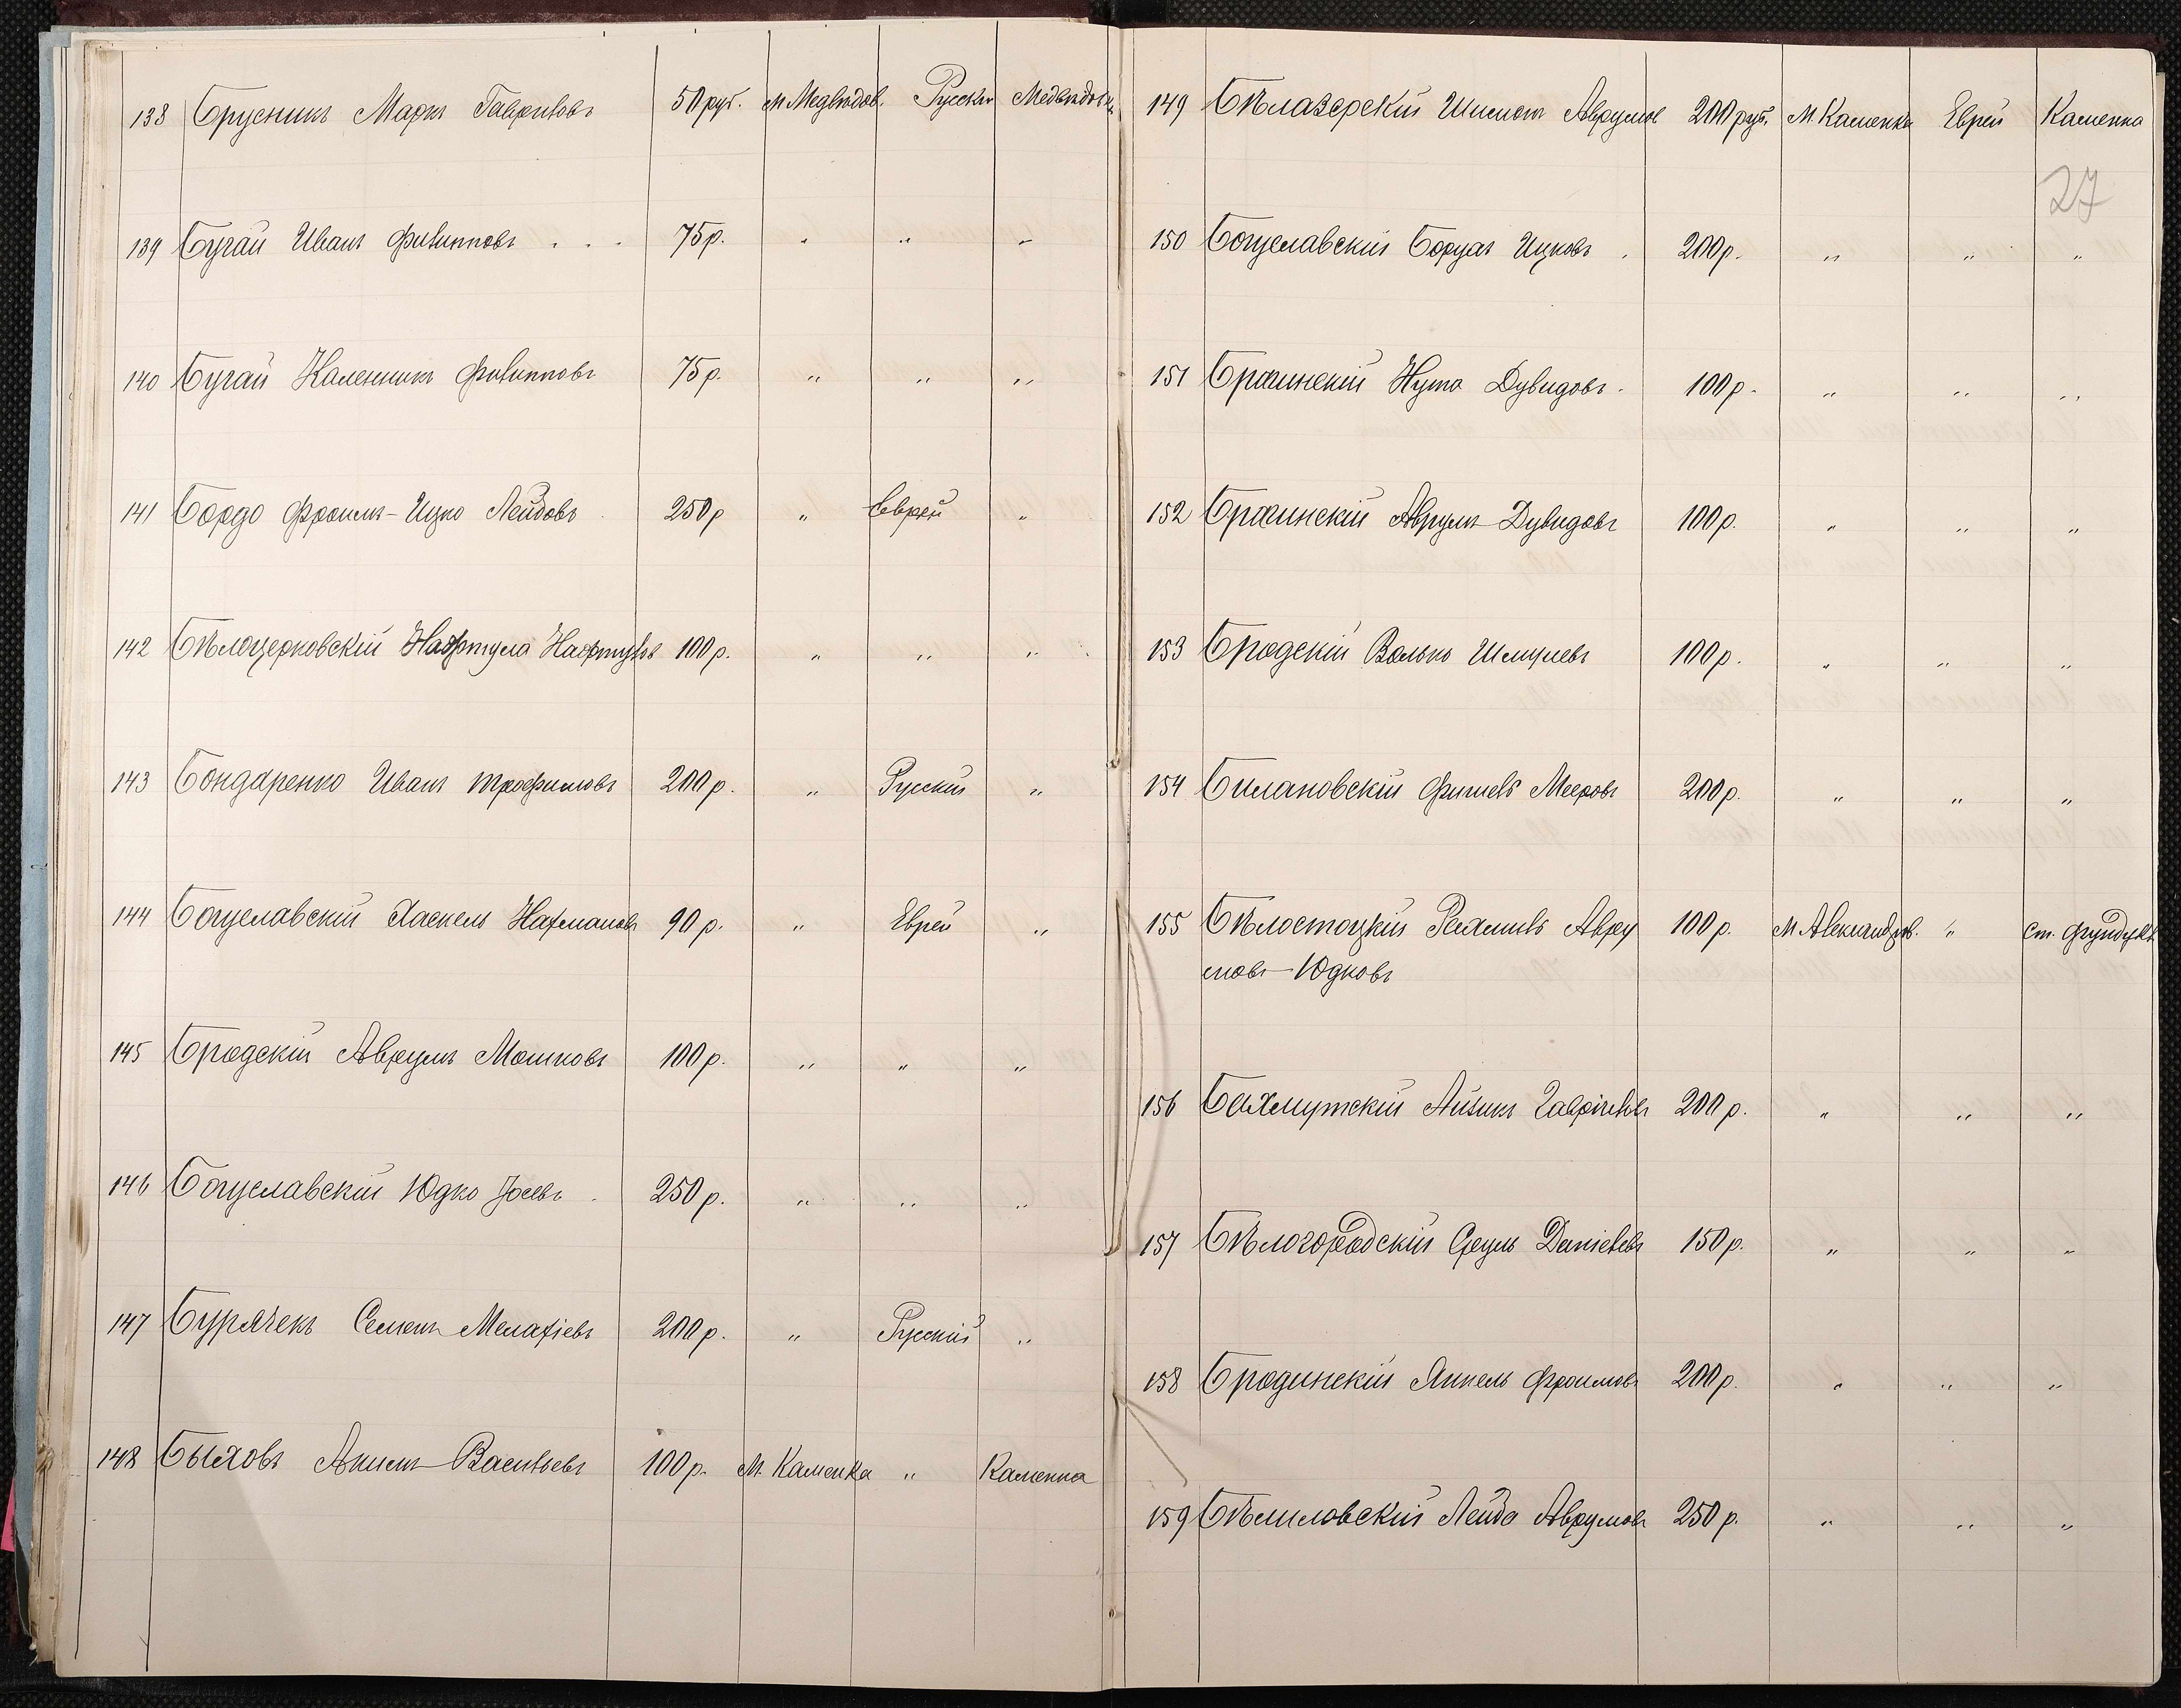 138 Брусникъ Марко Гавриловъ 50 руб. М. Медвѣдов. Русскій Медвѣдовк.
139 Бугай Иванъ Филипповъ . . . 75 р. " " "
140 Бугай Каленникъ Филипповъ 75 р. " " "
141 Бордо Фроимъ-Ицко Лейбовъ 250 р " Еврей "
142 Бѣлоцерковскій Нафтула Нафтуловъ 100 р. " " "
143 Бондаренко Иванъ Трофимовъ 200 р. " Русскій "
144 Богуславскій Хаскель Нахмановъ 90 р. " Еврей "
145 Бродскій Аврумъ Мошковъ 100 р. " " "
146 Богуславскій Юдко Іосевъ 250 р. " " "
147 Бурячекъ Семенъ Мелахіевъ 200 р. " Русскій "
148 Быховъ Акимъ Васильевъ 100 р. М. Каменка " Каменка
149 Бѣлазерскій Шимонъ Аврумов 200 руб. М. Каменка Еврей Каменка
27
150 Богуславскій Борухъ Ицковъ . 200 р. " " "
151 Бражинскій Нута Дувидовъ. 100 р. " " "
152 Бражинскій Аврумъ Дувидовъ 100 р. " " "
153 Бродскій Волько Шмулевъ 100 р. " " "
154 Билановскій Фишель Мееровъ 200 р. " " "
155 Бѣлостоцкій Рахмиль Авру 100 р. М. Александров. " ст. Фундукл.
мовъ-Юдковъ
156 Бахмутскій Айзикъ Гавріиловъ 200 р. " " "
157 Бѣлогородскій Сруль Даніелевъ 150 р. " " "
158 Бродинскій Янкель Фроимовъ 200 р. " " "
159 Бѣлиловскій Лейба Аврумовъ 250 р. " " "